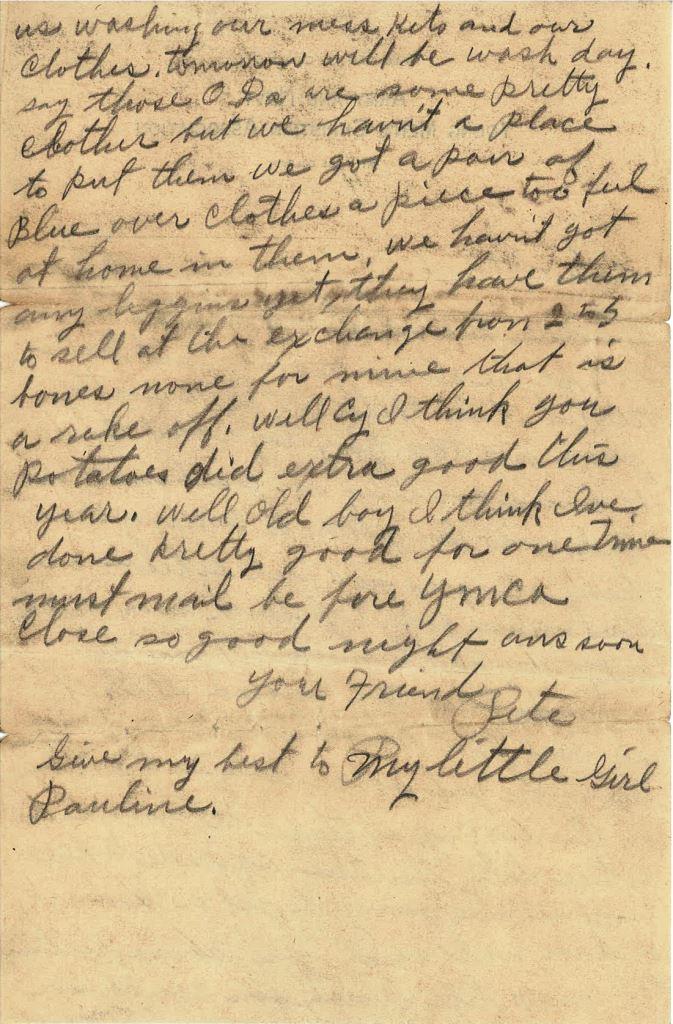 us washing our mess kits and our
clothes. tomorrow will be wash day.
say those O Ds are some pretty
clothes but we havn't a place
to put them we got a pair of
Blue over clothes a piece too feel
at home in them. we havn't got
any leggins yet, they have them
to sell at the exchange from 2 to 5
bones none for mine that is
a rake off. Well Cy I think you
potatoes did extra good this
year. Well Old boy I think I've
done pretty good for one Time
must mail be fore YMCA
Close so good night ans soon
Your Friend
Pete
Give my best to My little Girl
Pauline.